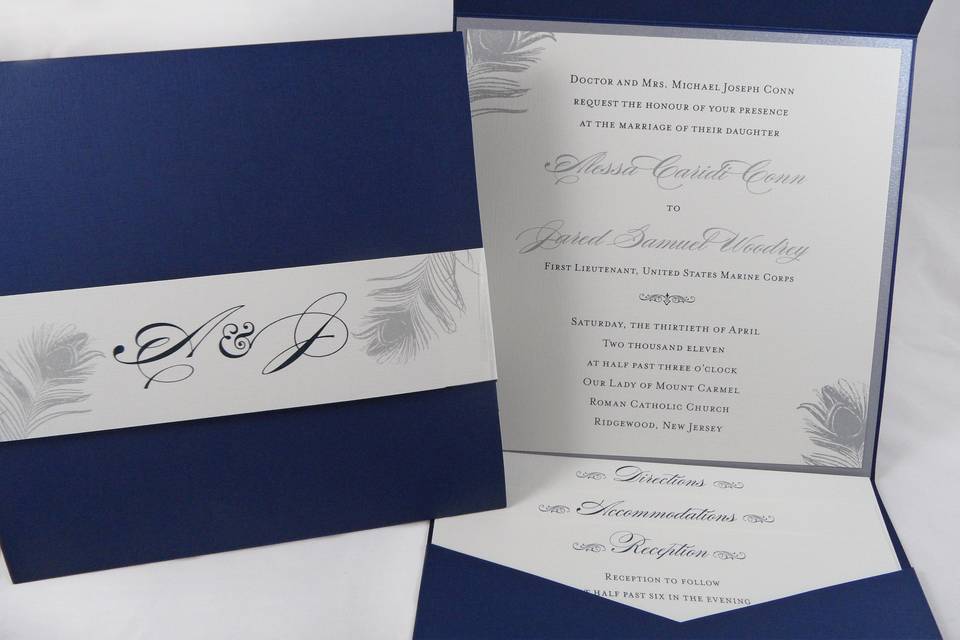 A & J
Doctor and Mrs. Michael Joseph Conn
request the honour of your presence
at the marriage of their daughter
Alessa Caridi Conn
to
Jared Samuel Woodrey
First Lieutenant, United States Marine Corps
Saturday, the thirtieth of April
Two thousand eleven
at half past three o'clock
Our Lady of Mount Carmel
Roman Catholic Church
Ridgewood, New Jersey
Directions
Accommodations
Reception
Reception to follow
half past six in the evening